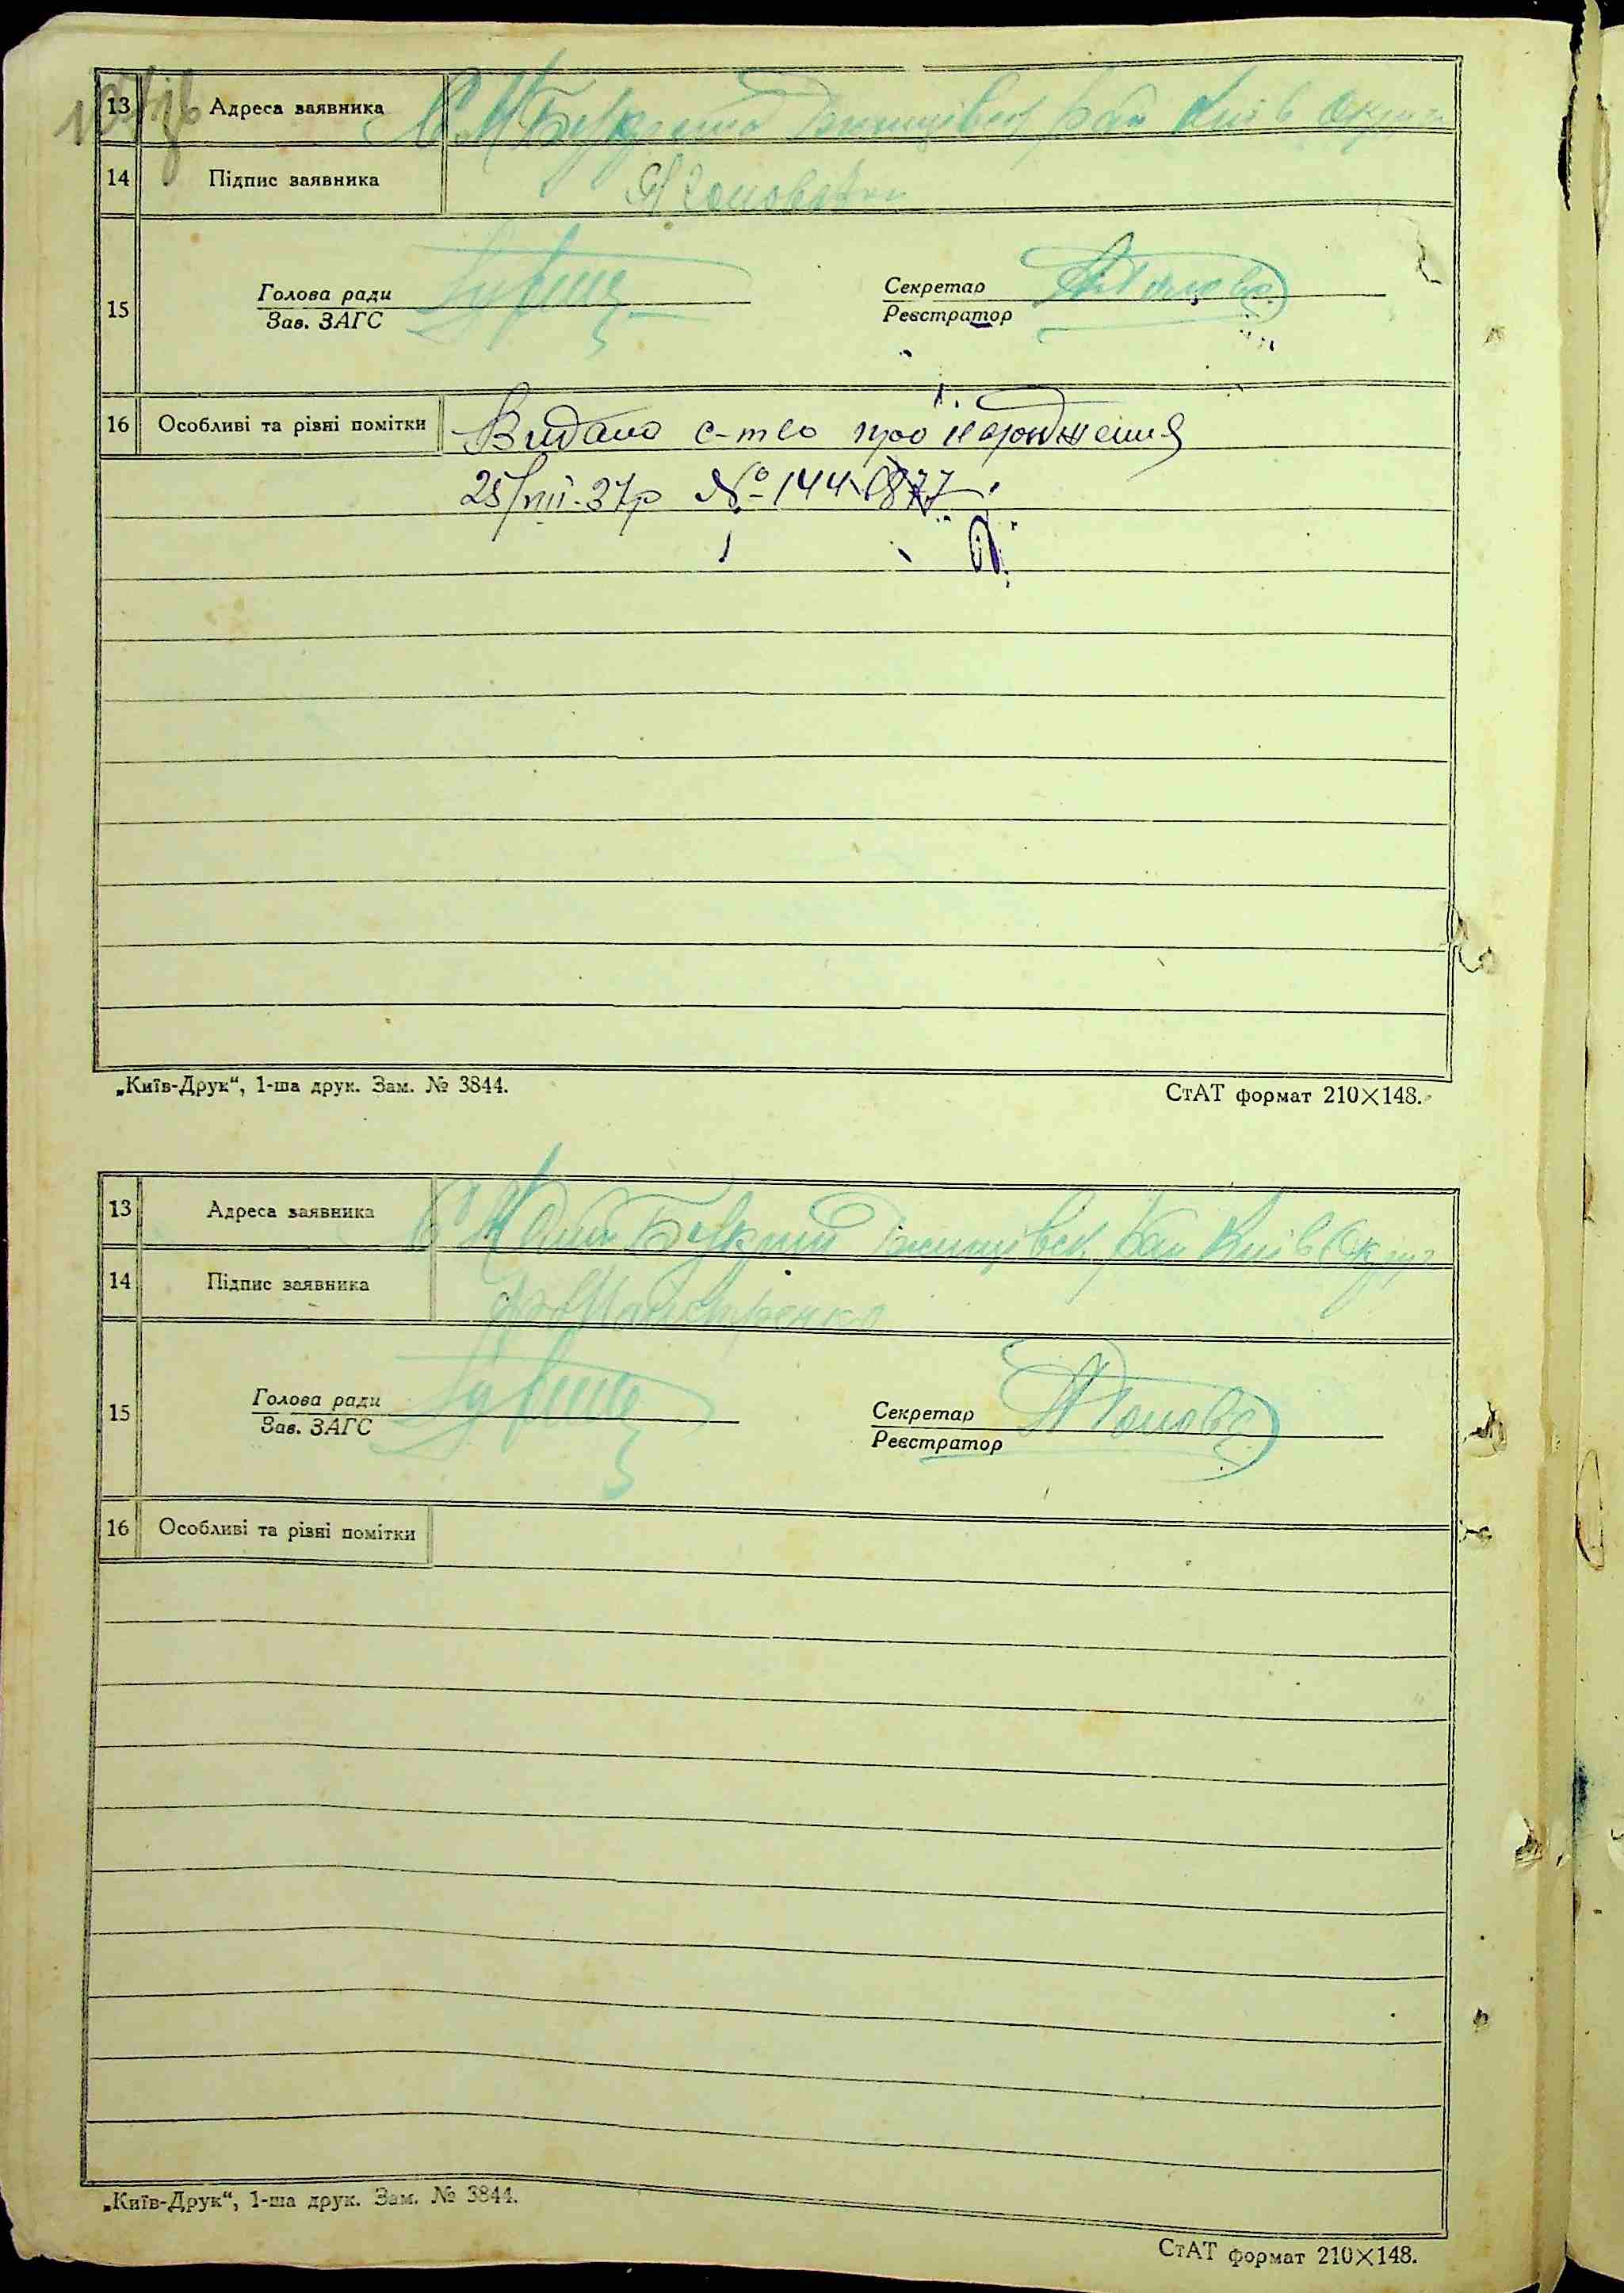 13 Адреса заявника С. М Букрин Ржищівськ рай Київ Округ
14 Підпис заявника
15 Голова ради
Зав. ЗАГС
Секретар
Реєстратор
16 Особливі та різні помітки Видано с-тво про народження
25/VIII-37р №
„Київ-Друк“, 1-ша друк. Зам. № 3844.
СтАТ формат 210×148.
13 Адреса заявника С М Букрин Ржищівськ рай Київ Округ
14 Підпис заявника
15 Голова ради
Зав. ЗАГС
Секретар
Реєстратор
16 Особливі та різні помітки
„Київ-Друк“, 1-ша друк. Зам. № 3844.
СтАТ формат 210×148.